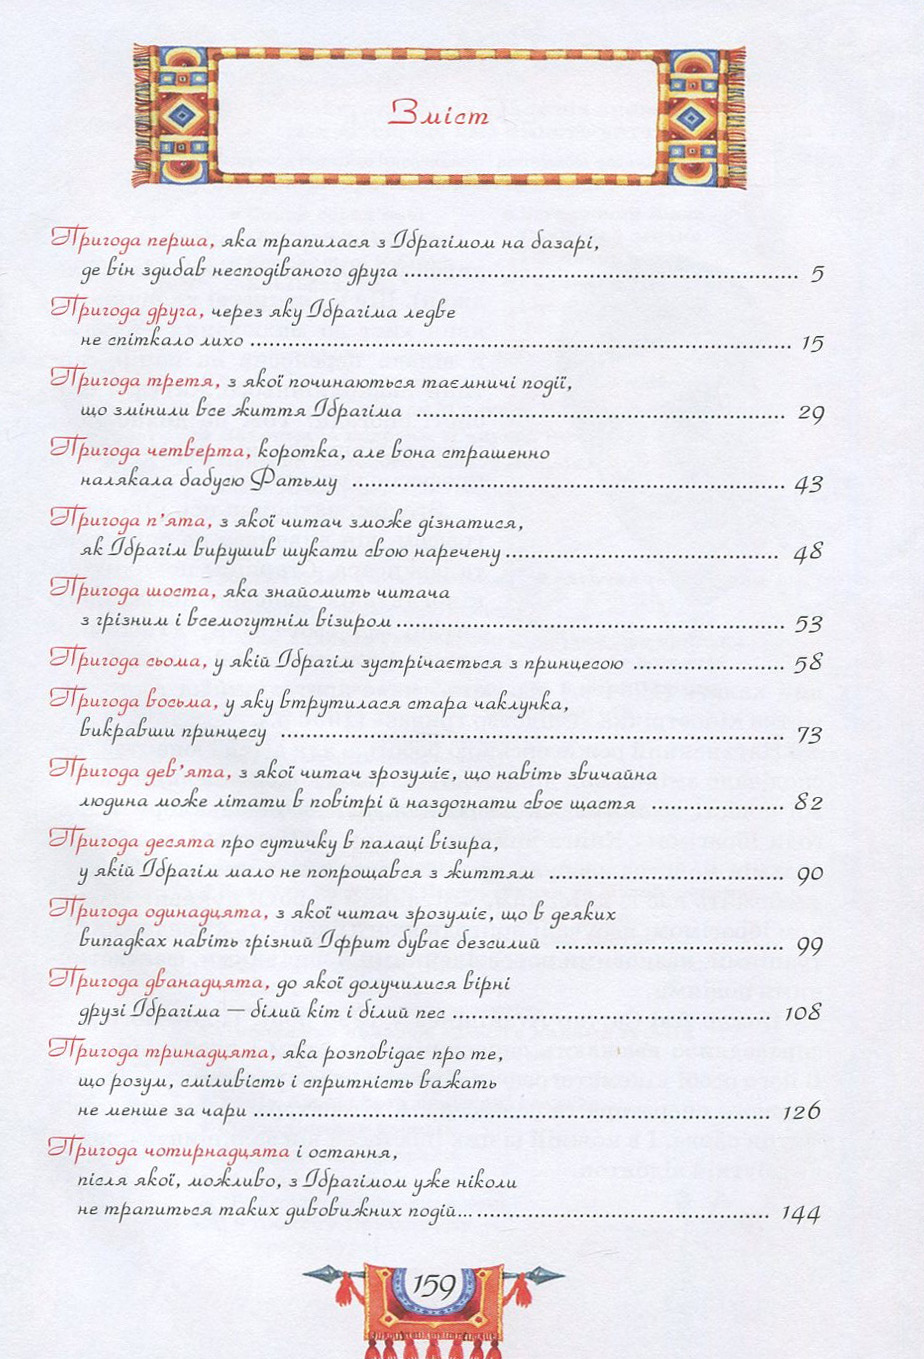 Зміст
Пригода перша, яка трапилася з Ібрагімом на базарі,
де він здибав несподіваного друга ........ 5
Пригода друга, через яку Ібрагіма ледве
не спіткало лихо ........ 15
Пригода третя, з якої починаються таємничі події,
що змінили все життя Ібрагіма ........ 29
Пригода четверта, коротка, але вона страшенно
налякала бабусю Фатьму ........ 43
Пригода п'ята, з якої читач зможе дізнатися,
як Ібрагім вирушив шукати свою наречену ........ 48
Пригода шоста, яка знайомить читача
з грізним і всемогутнім візиром ........ 53
Пригода сьома, у якій Ібрагім зустрічається з принцесою ........ 58
Пригода восьма, у яку втрутилася стара чаклунка,
викравши принцесу ........ 73
Пригода дев'ята, з якої читач зрозуміє, що навіть звичайна
людина може літати в повітрі й наздогнати своє щастя ........ 82
Пригода десята про сутичку в палаці візира,
у якій Ібрагім мало не попрощався з життям ........ 90
Пригода одинадцята, з якої читач зрозуміє, що в деяких
випадках навіть грізний Іфрит буває безсилий ........ 99
Пригода дванадцята, до якої долучилися вірні
друзі Ібрагіма — білий кіт і білий пес ........ 108
Пригода тринадцята, яка розповідає про те,
що розум, сміливість і спритність важать
не менше за чари ........ 126
Пригода чотирнадцята і остання,
після якої, можливо, з Ібрагімом уже ніколи
не трапиться таких дивовижних подій... ........ 144
159